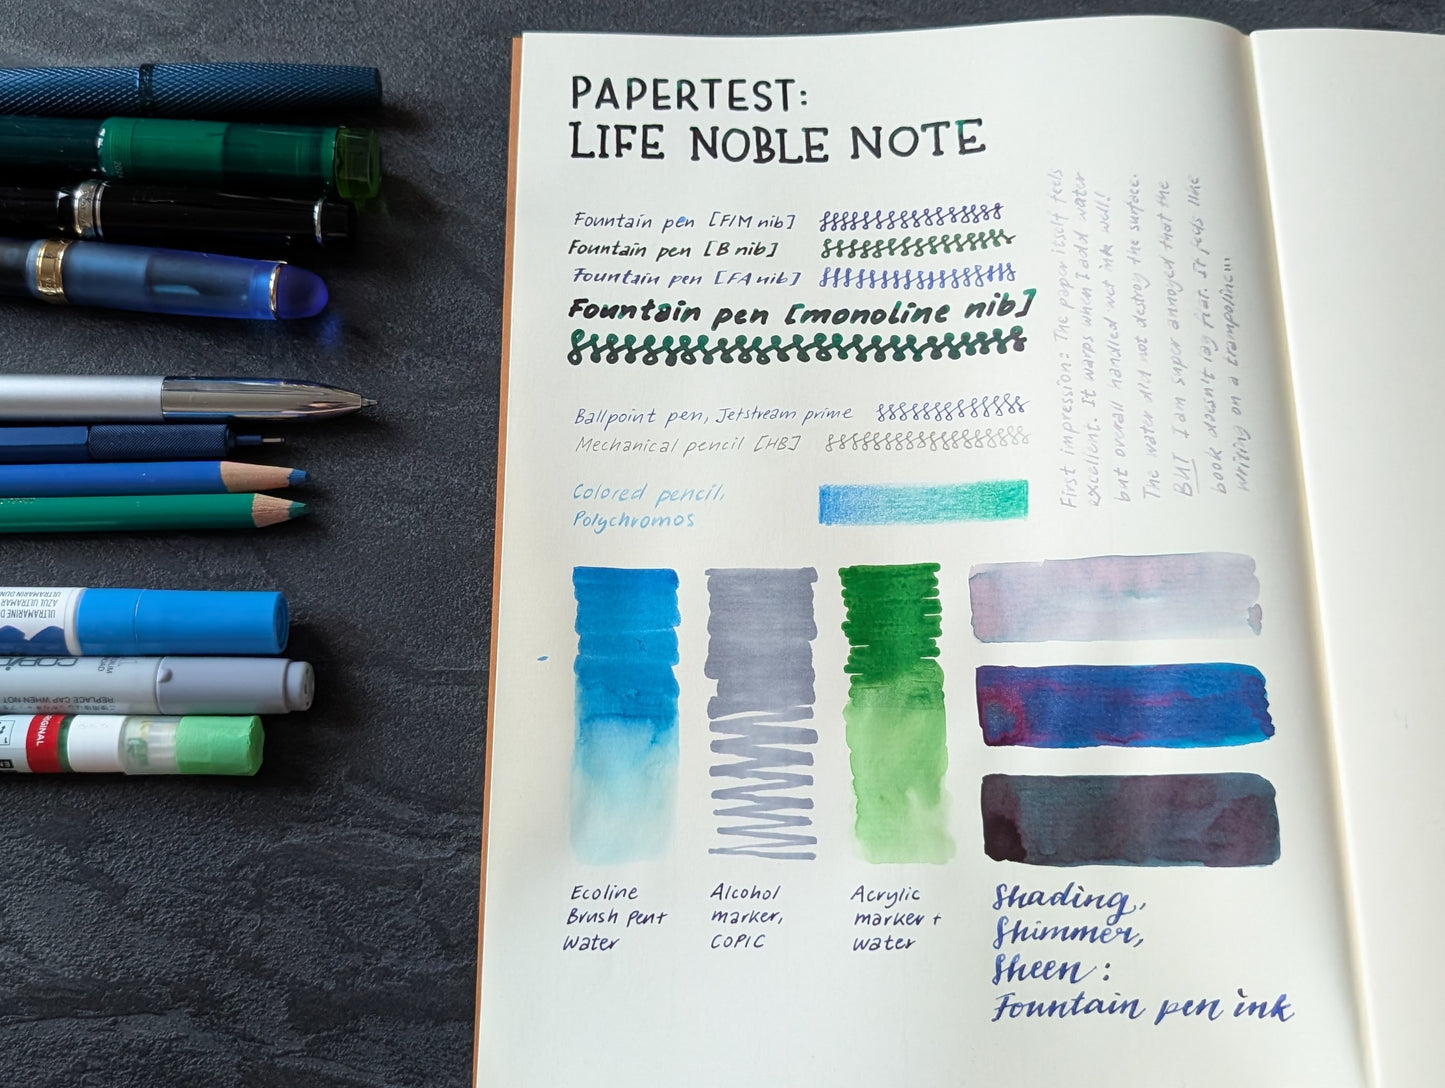 PAPERTEST:
LIFE NOBLE NOTE
Fountain pen [F/M nib]
Fountain pen [B nib]
Fountain pen [FA nib]
Fountain pen [monoline nib]
Ballpoint pen, Jetstream prime
Mechanical pencil [HB]
Colored pencil,
Polychromos
First impression: The paper itself feels
excellent. It warps when I add water
but overall handled wet ink well!
The water did not destroy the surface.
BUT I am super annoyed that the
book doesn't lay flat. It feels like
writing on a trampoline!!!
Ecoline
Brush pen+
Water
Alcohol
marker,
COPIC
Acrylic
marker +
water
Shading,
Shimmer,
Sheen:
Fountain pen ink
AZUL ULTRAMAR
COPIC
REPLACE CAP WHEN NOT